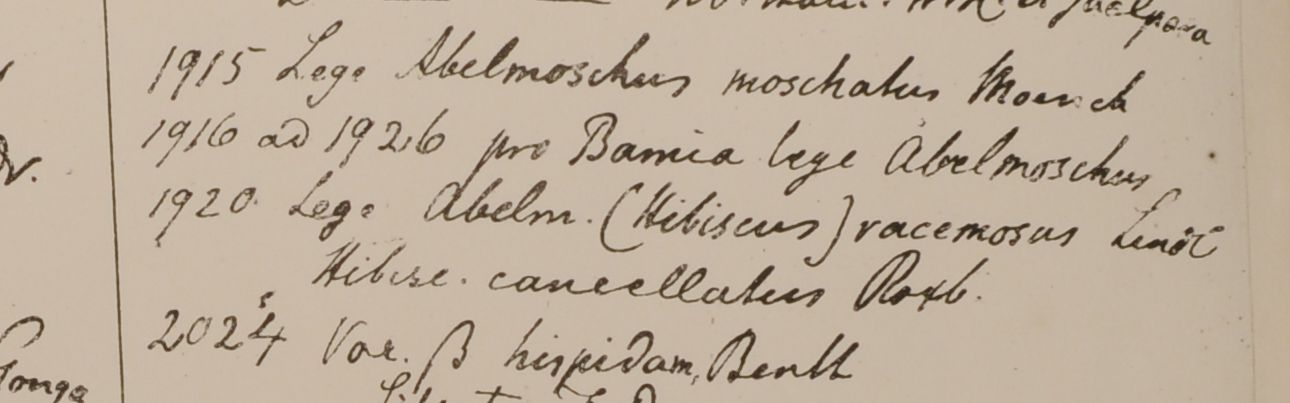 Juelpara
1915 Lege Abelmoschus moschatus Moench
1916 ad 1926 pro Bamia lege Abelmoschus
1920. Lege Abelm. (Hibiscus) racemosus Lindl
Hibisc. cancellatus Roxb.
2024 Var. β hispidam, Benth
Tonga